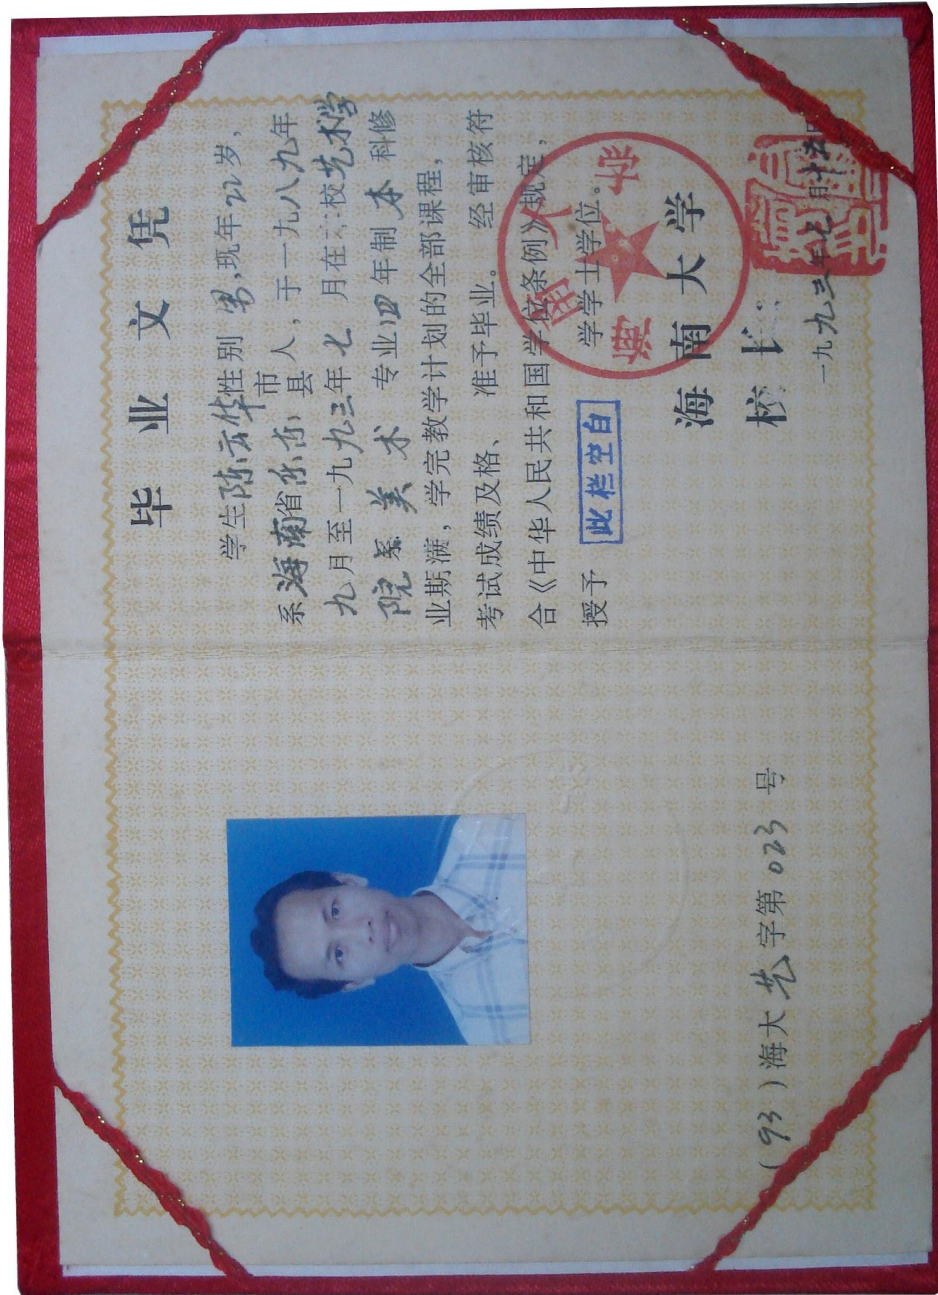 毕业文凭
学生陈云华性别男,现年22岁,
系海南省乐东市县人,于一九八九年
九月至一九九三年七月在本校艺术学
院系美术专业四年制本科修
业期满,学完教学计划的全部课程,
考试成绩及格、准予毕业。经审核符
合《中华人民共和国学位条例》规定,
授予 此栏空白 学学士学位。
海南大学
校长
一九九三年七月十五日
(93)海大艺字第023号